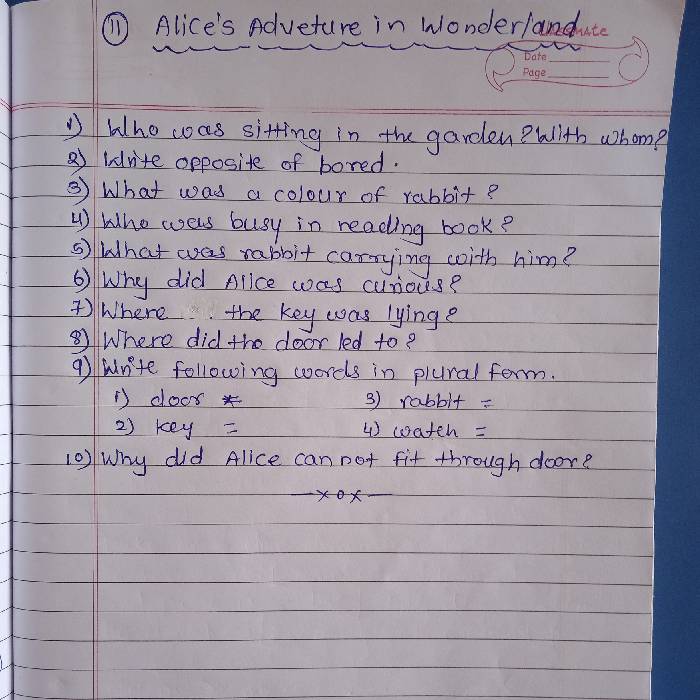 11 Alice's Adveture in Wonderland
Date
Page
1) Who was sitting in the garden? With whom?
2) Write opposite of bored.
3) What was a colour of rabbit?
4) Who was busy in reading book?
5) What was rabbit carrying with him?
6) Why did Alice was curious?
7) Where the key was lying?
8) Where did the door led to?
9) Write following words in plural form.
1) door = 3) rabbit =
2) key = 4) watch =
10) Why did Alice can not fit through door?
—x o x—